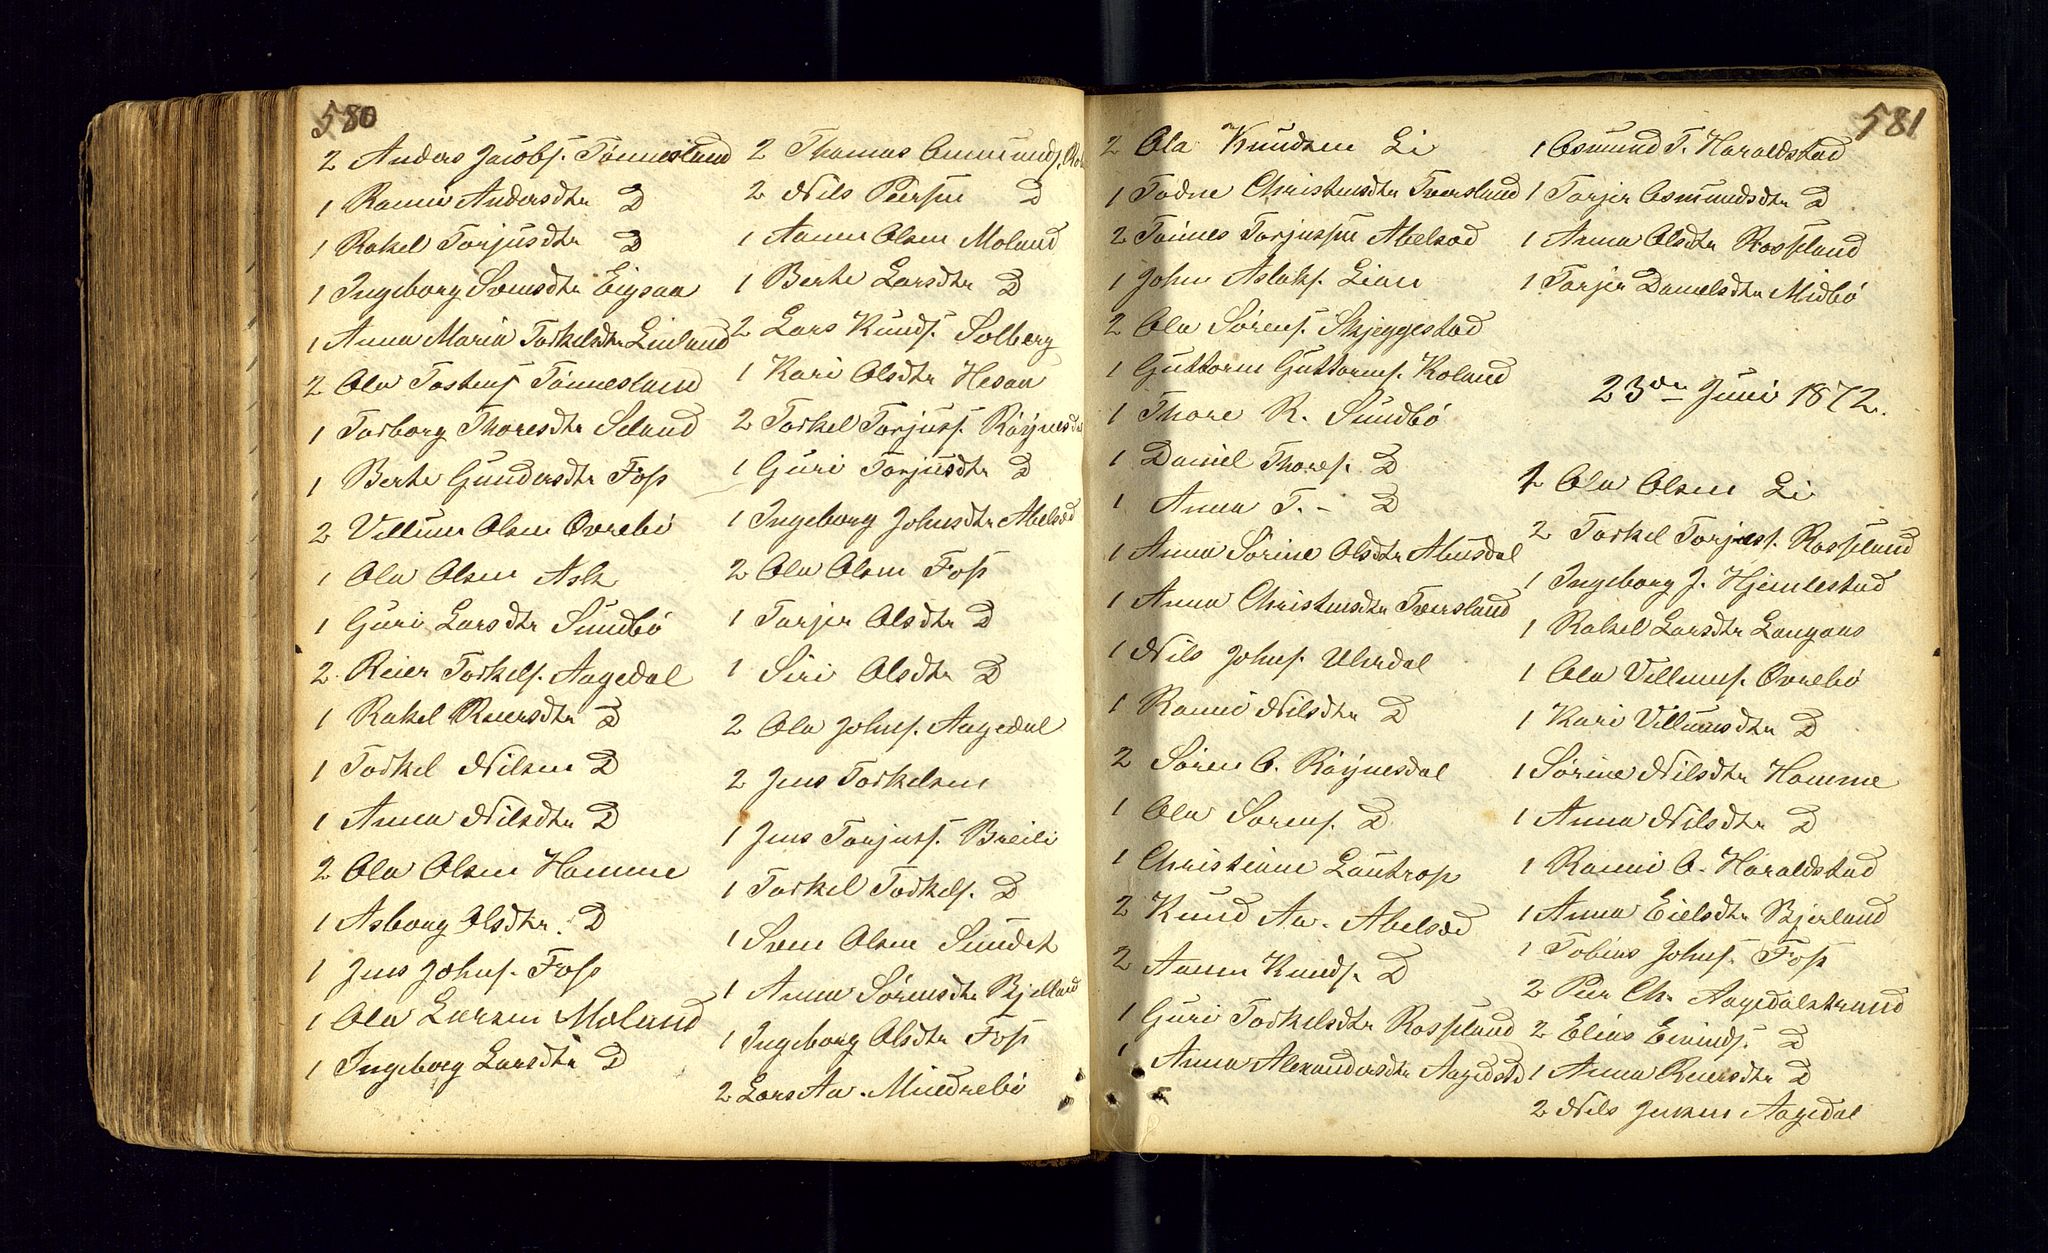 580
2 Anders Jacobs. Tønnesland
1 Rannei Andersdtr D
1 Rakel Torjusdtr D
1 Ingeborg Svensdtr Eigsaa
1 Anna Maria Torkelsdtr Linland
2 Ola Tostens. Tønnesland
1 Torborg Thoresdtr Seland
1 Berte Gundersdtr Foss
2 Villum Olsen Øvrebø
1 Ola Olsen Ask
1 Guri Larsdtr Sundbø
2 Reier Torkels. Aagedal
1 Rakel Reiersdtr D
1 Torkel Nilsen D
1 Anna Nilsdtr D
2 Ola Olsen Homme
1 Asborg Olsdtr. D
1 Jens Johns. Foss
1 Ola Larsen Moland
1 Ingeborg Larsdtr D
2 Thomas Aanunds.
2 Nils Peersen D
1 Aanen Olsen Moland
1 Berte Larsdtr D
2 Lars Knuds. Solberg
1 Kari Olsdtr Hesaa
2 Torkel Torjuss. Røynesdal
1 Guri Torjusdtr D
1 Ingeborg Johnsdtr Abelsæd
2 Ola Olsen Foss
1 Torjer Olsdtr D
1 Siri Olsdtr D
2 Ola Johns. Aagedal
2 Jens Torkelsen
1 Jens Torjuss. Breili
1 Torkel Torkels. D
1 Sven Olsen Sundet
1 Anna Sørensdtr Bjelland
1 Ingeborg Olsdtr Foss
2 Lars Aa. Mindrebø
581
2 Ola Knudsen Li
1 Todne Christensdtr Tversland
2 Tønnes Torjussen Abelsæd
1 John Aslaks. Lian
2 Ola Sørens. Skjeggestad
1 Guttorm Guttorms. Roland
1 Thore R. Sundbø
1 Daniel Thores. D
1 Anna T. - D
1 Anna Sørine Olsdtr Abusdal
1 Anna Christensdtr Tversland
1 Nils Johns. Uleedal
1 Rannei Nilsdtr D
2 Søren O. Røynesdal
1 Ola Sørens. D
1 Christiane Lautrop
2 Knud Aa. Abelsæd
2 Aanen Knuds. D
1 Guri Torkelsdtr Rosseland
1 Anna Alexandersdtr
1 Osmund T. Haraldstad
1 Torjer Osmundsdtr D
1 Anna Olsdtr Rosseland
1 Torjer Danielsdtr Midbø
23de Juni 1872.
2 Ola Olsen Li
2 Torkel Torjuss. Rosseland
1 Ingeborg J. Hjemlestad
1 Rakel Larsdtr Langaas
1 Ola Villums. Øvrebø
1 Kari Villumsdtr D
1 Sørine Nilsdtr Homme
1 Anna Nilsdtr D
1 Rannei O. Haraldstad
1 Anna Eielsdtr Bjerland
1 Tobias Johns. Foss
2 Peer Chr. Aagedalstrand
2 Elias Eivinds. D
1 Anna Reiersdtr D
2 Nils Jensen Aagedal